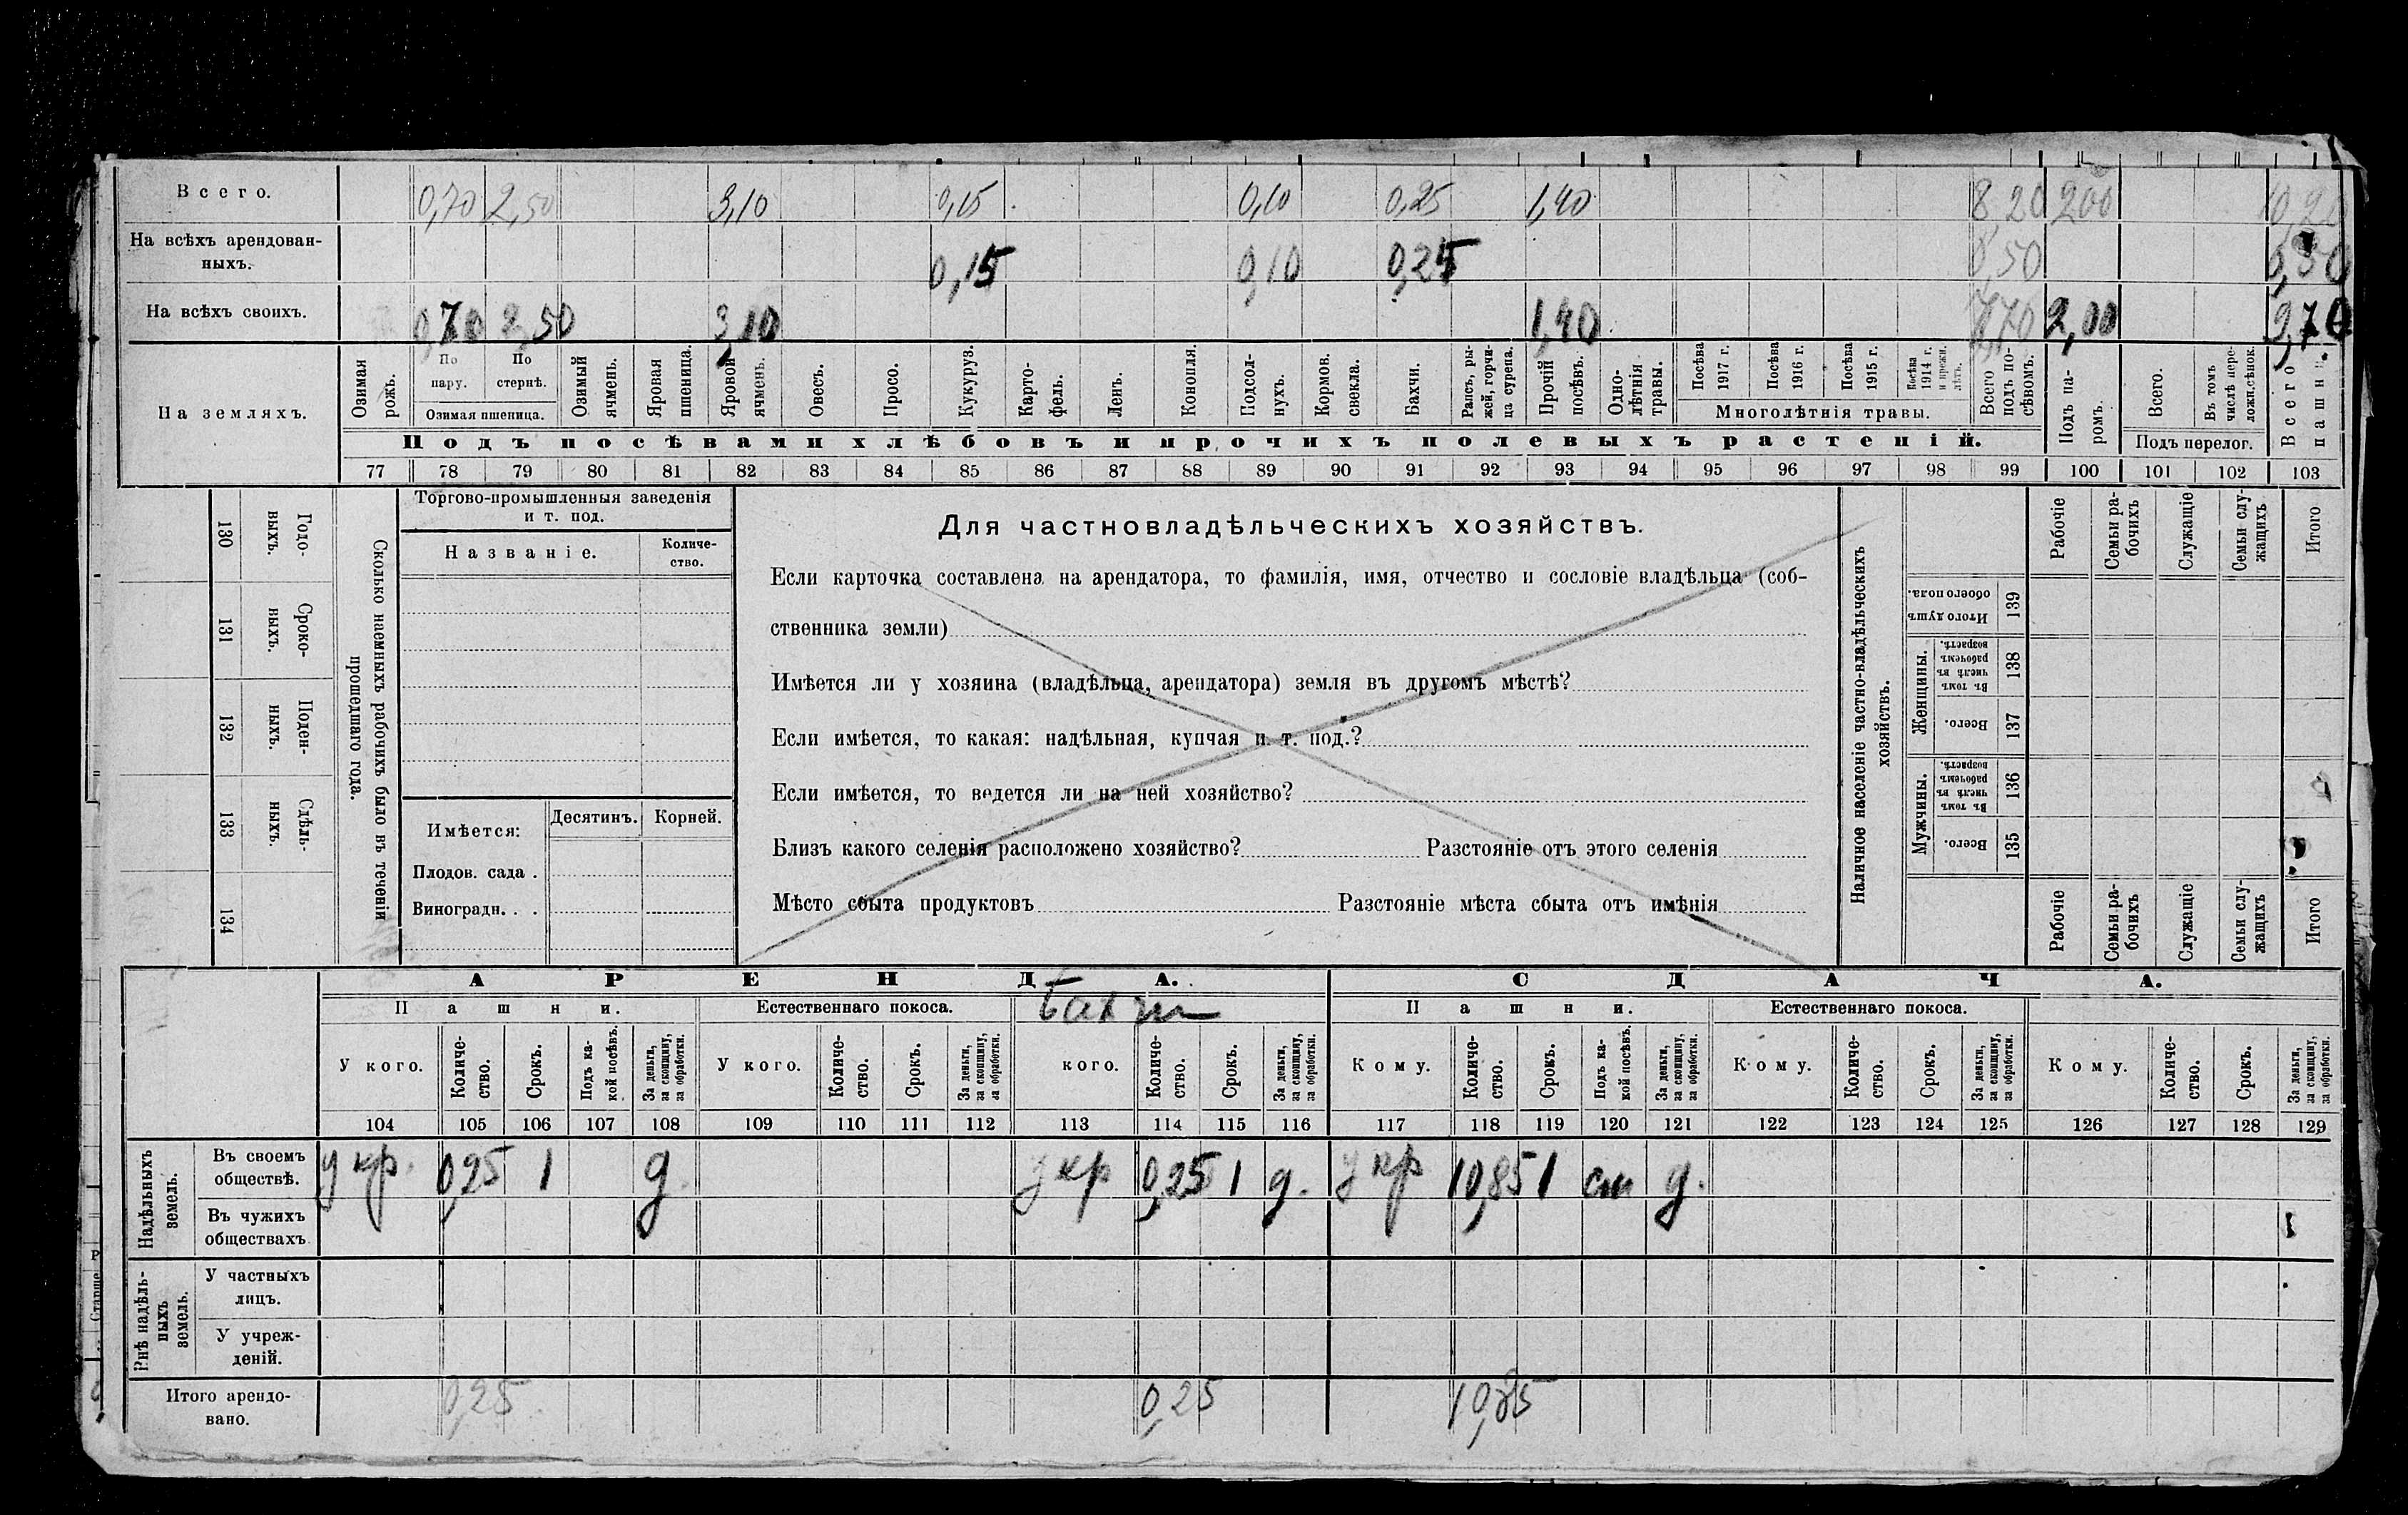 Всего. 0,70 2,50 3,10 0,15 0,10 0,25 1,40 8 20 200 10,20
На всѣхъ арендован-
ныхъ. 0,15 0,10 0,25 0,50 0,50
На всѣхъ своихъ. 0,70 2,50 3,10 1,40 7,70 2,00 9,70
На земляхъ.
Озимая рожь.
По пару.
По стернѣ.
Озимая пшеница.
Озимый ячмень.
Яровая пшеница.
Яровой ячмень.
Овесъ.
Просо.
Кукуруз.
Карто-
фель.
Ленъ.
Конопля.
Подсол-
нухъ.
Кормов.
свекла.
Бахчи.
Рапсъ, ры-
жей, горчи-
ца сурепа.
Прочій посѣвъ.
Одно-
лѣтнія
травы.
Посѣва 1917 г.
Посѣва 1916 г.
Посѣва 1915 г.
Посѣва 1914 г. и прежн. лѣтъ.
Многолѣтнія травы.
Всего подъ по-
сѣвомъ.
Подъ па-
ромъ.
Всего.
Въ томъ числѣ пере-
ложн.сѣнок.
Подъ перелог.
Всего пашни.
Подъ посѣвами хлѣбовъ и проч. ихъ полевыхъ растеній.
77 78 79 80 81 82 83 84 85 86 87 88 89 90 91 92 93 94 95 96 97 98 99 100 101 102 103
130 Годо-
выхъ.
131 Сроко-
выхъ.
132 Поден-
ныхъ.
133 Сдѣль-
ныхъ.
134
Сколько наемныхъ рабочихъ было въ теченіи
прошедшаго года.
Торгово-промышленныя заведенія
и т. под.
Названіе.
Количе-
ство.
Имѣется: Десятинъ. Корней.
Плодов. сада .
Виноградн. . .
Для частновладѣльческихъ хозяйствъ.
Если карточка составлена на арендатора, то фамилія, имя, отчество и сословіе владѣльца (соб-
ственника земли)
Имѣется ли у хозяина (владѣльца, арендатора) земля въ другомъ мѣстѣ?
Если имѣется, то какая: надѣльная, купчая и т. под.?
Если имѣется, то ведется ли на ней хозяйство?
Близъ какого селенія расположено хозяйство? Разстояніе отъ этого селенія
Мѣсто сбыта продуктовъ Разстояніе мѣста сбыта отъ имѣнія
Наличное населеніе частно-владѣльческихъ
хозяйствъ.
Рабочіе
Семьи ра-
бочихъ
Служащіе
Семьи слу-
жащихъ
Итого
Итого душъ обоего пола. 139
Женщины.
Въ томъ числѣ въ рабочемъ возрастѣ. 138
Всего. 137
Мужчины.
Въ томъ числѣ въ рабочемъ возрастѣ. 136
Всего. 135
Рабочіе
Семьи ра-
бочихъ
Служащіе
Семьи слу-
жащихъ
Итого
АРЕНДА. СДАЧА.
Пашни. Естественнаго покоса. Бахчи Пашни. Естественнаго покоса.
У кого.
Количе-
ство.
Срокъ.
Подъ ка-
кой посѣвъ.
За деньги,
за скопщину,
за обработки.
У кого.
Количе-
ство.
Срокъ.
За деньги,
за скопщину,
за обработки.
кого.
Количе-
ство.
Срокъ.
За деньги,
за скопщину,
за обработки.
Кому.
Количе-
ство.
Срокъ.
Подъ ка-
кой посѣвъ.
За деньги,
за скопщину,
за обработки.
Кому.
Количе-
ство.
Срокъ.
За деньги,
за скопщину,
за обработки.
Кому.
Количе-
ство.
Срокъ.
За деньги,
за скопщину,
за обработки.
104 105 106 107 108 109 110 111 112 113 114 115 116 117 118 119 120 121 122 123 124 125 126 127 128 129
Надѣльныхъ
земель.
Въ своемъ
обществѣ. у кр. 0,25 1 д. у кр 0,25 1 д. у кр 10,85 1 д.
Въ чужихъ
обществахъ
Внѣ надѣль-
ныхъ
земель.
У частныхъ
лицъ.
У учреж-
деній.
Итого арендо-
вано. 0,25 0,25 10,85